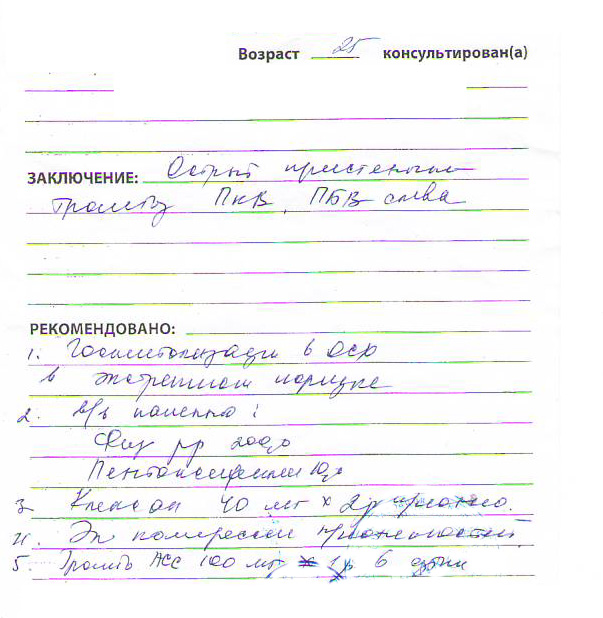 Возраст 25 консультирован(а)
ЗАКЛЮЧЕНИЕ: Острый пристеночный
тромбоз ПкВ, ПБВ слева
РЕКОМЕНДОВАНО:
1. Госпитализация в ОСХ
в экстренном порядке
2. В/в капельно:
Физ рр 200,0
Пентоксифиллин 10,0
3. Клексан 40 мг х 2р
4. Эл компрессия конечностей
5. Тромбо АСС 100 мг 1р в день